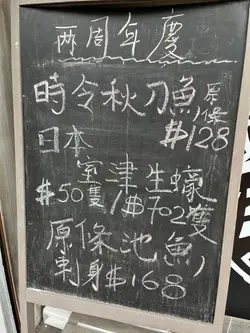 两周年慶
時令秋刀魚原條
$128
日本
室津生蠔
$50隻/$702隻
原條池魚
刺身$168